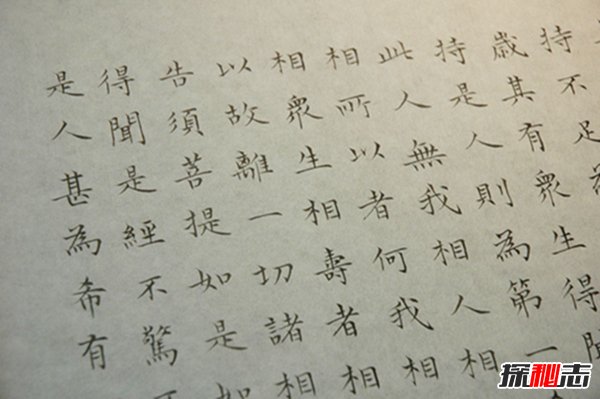 持不足為
歲其有眾生得聞
持是人則為第一
此人無我相人相
相所以者何我相
相眾生相壽者相
以故離一切諸相
告須菩提如是如
得聞是經不驚不
是人甚為希有
探秘志